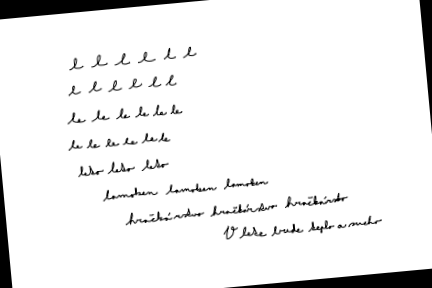 l l l l l l
l l l l l l
le le le le le le
le le le le le le
leto leto leto
lomozen lomozen lomozen
hračkárstvo hračkárstvo hračkárstvo
V lete bude teplo a sucho